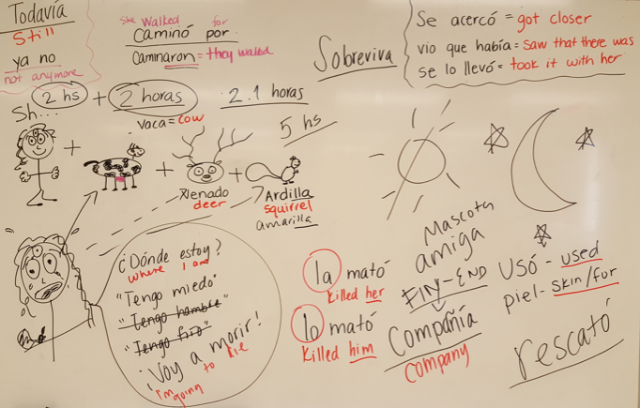 Todavía
Still
ya no
not anymore
She walked for
Caminó por
Caminaron = they walked
Sobreviva
Se acercó = got closer
vio que había = saw that there was
se lo llevó = took it with her
Sh...
2 hs + 2 horas
2.1 horas
5 hs
vaca = cow
Venado
deer
Ardilla
squirrel
amarilla
¿Dónde estoy?
where I am
"Tengo miedo"
"Tengo hambre"
"Tengo frío"
¡Voy a morir!
I'm going to die
la mató
Killed her
lo mató
Killed him
Mascota
amiga
FIN - END
Compañía
company
USÓ - used
piel - skin/fur
rescató